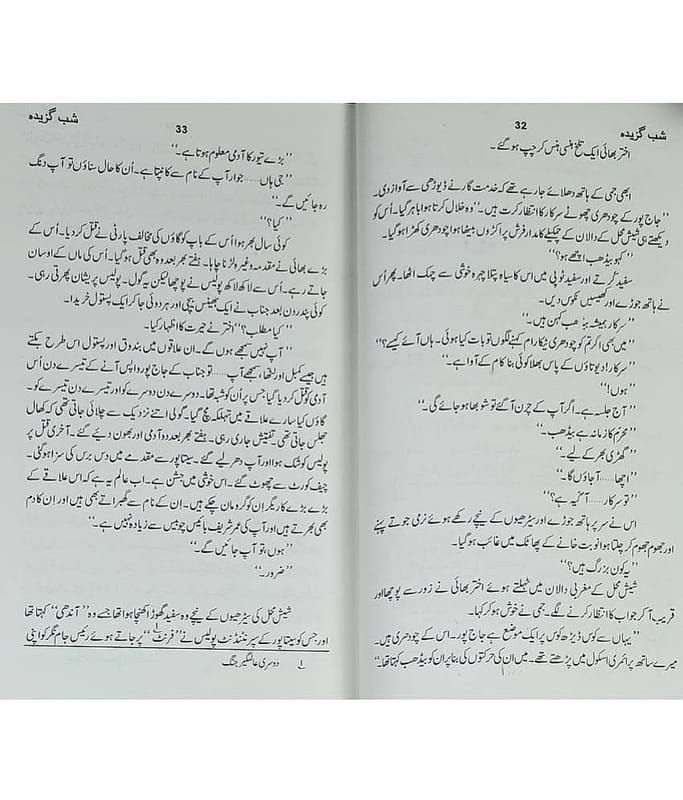 32
شب گزیدہ
اختر بھائی ایک تلخ ہنسی ہنس کر چپ ہو گئے ۔
ابھی جمی کے ہاتھ دھلائے جا رہے تھے کہ خدمت گار نے ڈیوڑھی سے آواز دی۔
’’ جاج پور کے چودھری چھونے سرکار کا انتظار کرت ہیں۔‘‘ وہ خلال کرتا ہوا باہر گیا۔ اُس کو
دیکھتے ہی شیش محل کے دالان کے چمکیلے کامدار فرش پر اکڑوں بیٹھا ہوا چودھری کھڑا ہو گیا۔
’’ کہو بیڈھب اچھے ہو؟‘‘
سفید کرتے اور سفید ٹوپی میں اس کا سیاہ پتلا چہرہ خوشی سے چمک اٹھا۔ پھر اُس
نے ہاتھ جوڑے اور کھیسیں نکوس دیں۔
’’ سرکار ہمیشہ بیڈھب کہن ہیں۔‘‘
’’ میں بھی اگر تم کو چودھری ٹیکا رام کہنے لگوں تو بات کیا ہوئی۔ ہاں آئے کیسے؟‘‘
’’ سرکار! دیوتاؤں کے پاس بھلا کوئی بنا کام کے آوا ہے۔‘‘
’’ ہوں!‘‘
’’ آج جلسہ ہے۔ اگر آپ کے چرن آ گئے تو شوبھا ہو جائے گی۔‘‘
’’ محرّم کا زمانہ ہے بیڈھب۔‘‘
’’ گھڑی بھر کے لیے۔‘‘
’’ اچھا......آ جاؤں گا۔‘‘
’’ تو سرکار......آگیہ ہے؟‘‘
اس نے سر پر ہاتھ جوڑے اور سیڑھیوں کے نیچے رکھے ہوئے نری جوتے پہنے
اور جھوم جھوم کر چلتا ہوا نوبت خانے کے پھاٹک میں غائب ہو گیا۔
’’ یہ کون بزرگ ہیں؟‘‘
شیش محل کے مغربی دالان میں ٹہلتے ہوئے اختر بھائی نے زور سے پوچھا اور
قریب آ کر جواب کا انتظار کرنے لگے۔ جمی نے خوش ہو کر کہا۔
’’ یہاں سے کوس ڈیڑھ کوس پر ایک موضع ہے جاج پور۔ اس کے چودھری ہیں۔
میرے ساتھ پرائمری اسکول میں پڑھتے تھے۔ میں ان کی حرکتوں کی بنا پر ان کو بیڈھب کہتا تھا۔‘‘
33
شب گزیدہ
’’ بڑے تیور کا آدمی معلوم ہوتا ہے۔‘‘
’’ جی ہاں......جوار آپ کے نام سے کانپتا ہے۔ اُن کا حال سناؤں تو آپ دنگ
رہ جائیں گے۔‘‘
’’ کیا؟‘‘
کوئی سال بھر ہوا اُس کے باپ کو گاؤں کی مخالف پارٹی نے قتل کر دیا۔ اُس کے
بڑے بھائی نے مقدمہ وغیرہ لڑنا چاہا۔ ہفتے بھر بعد وہ بھی قتل ہو گیا۔ اُس کی ماں کے اوسان
جاتے رہے۔ اُس سے لاکھ لاکھ پولیس نے پوچھا لیکن یہ گول۔ پولیس پریشان پھرتی رہی۔
کوئی پندرہ دن بعد جناب نے ایک بھینس بیچی اور ہردوئی جا کر ایک پستول خریدا۔
’’ کیا مطلب؟‘‘ اختر نے حیرت کا اظہار کیا۔
’’ آپ نہیں سمجھے ہوں گے۔ ان علاقوں میں بندوق اور پستول اس طرح بکتے
ہیں جیسے کمبل اور لٹھا، سمجھے آپ......تو جناب کے جاج پور واپس آنے کے تیسرے دن اُس
آدمی کو قتل کر دیا گیا جس پر اُن کو شبہ تھا۔ دوسرے دن دوسرے کو اور تیسرے دن تیسرے کو۔
گاؤں کیا سارے علاقے میں تہلکہ مچ گیا۔ گولی اتنے نزدیک سے چلائی جاتی تھی کہ کھال
جھلس جاتی تھی۔ تفتیش جاری رہی۔ ہفتے بھر بعد دو آدمی اور بھون دیئے گئے۔ آخری قتل پر
پولیس کو شک ہوا اور آپ دھر لیے گئے۔ سیتا پور سے مقدمے میں دس برس کی سزا ہو گئی۔
چیف کورٹ سے چھوٹ گئے۔ اس خوشی میں جشن ہے۔ اب عالم یہ ہے کہ اس علاقے کے
بڑے بڑے کاریگر ان کو گرو مان چکے ہیں۔ اِن کے نام سے گھبراتے بھی ہیں اور اِن کا دم
بھی بھرتے ہیں اور آپ کی عمر شریف بائیس چوبیس سے زیادہ نہیں ہے۔‘‘
’’ ہوں، تو آپ جائیں گے۔‘‘
’’ ضرور۔‘‘
شیش محل کی سیڑھیوں کے نیچے وہ سفید گھوڑا کھنچا ہوا تھا جسے وہ ’’ آندھی‘‘ کہتا تھا
اور جس کو سیتا پور کے سپرنٹنڈنٹ پولیس نے ’’ فرنٹ‘‘ ۱ پر جاتے ہوئے رئیس جام نگر کو اپنی
۱ دوسری عالمگیر جنگ